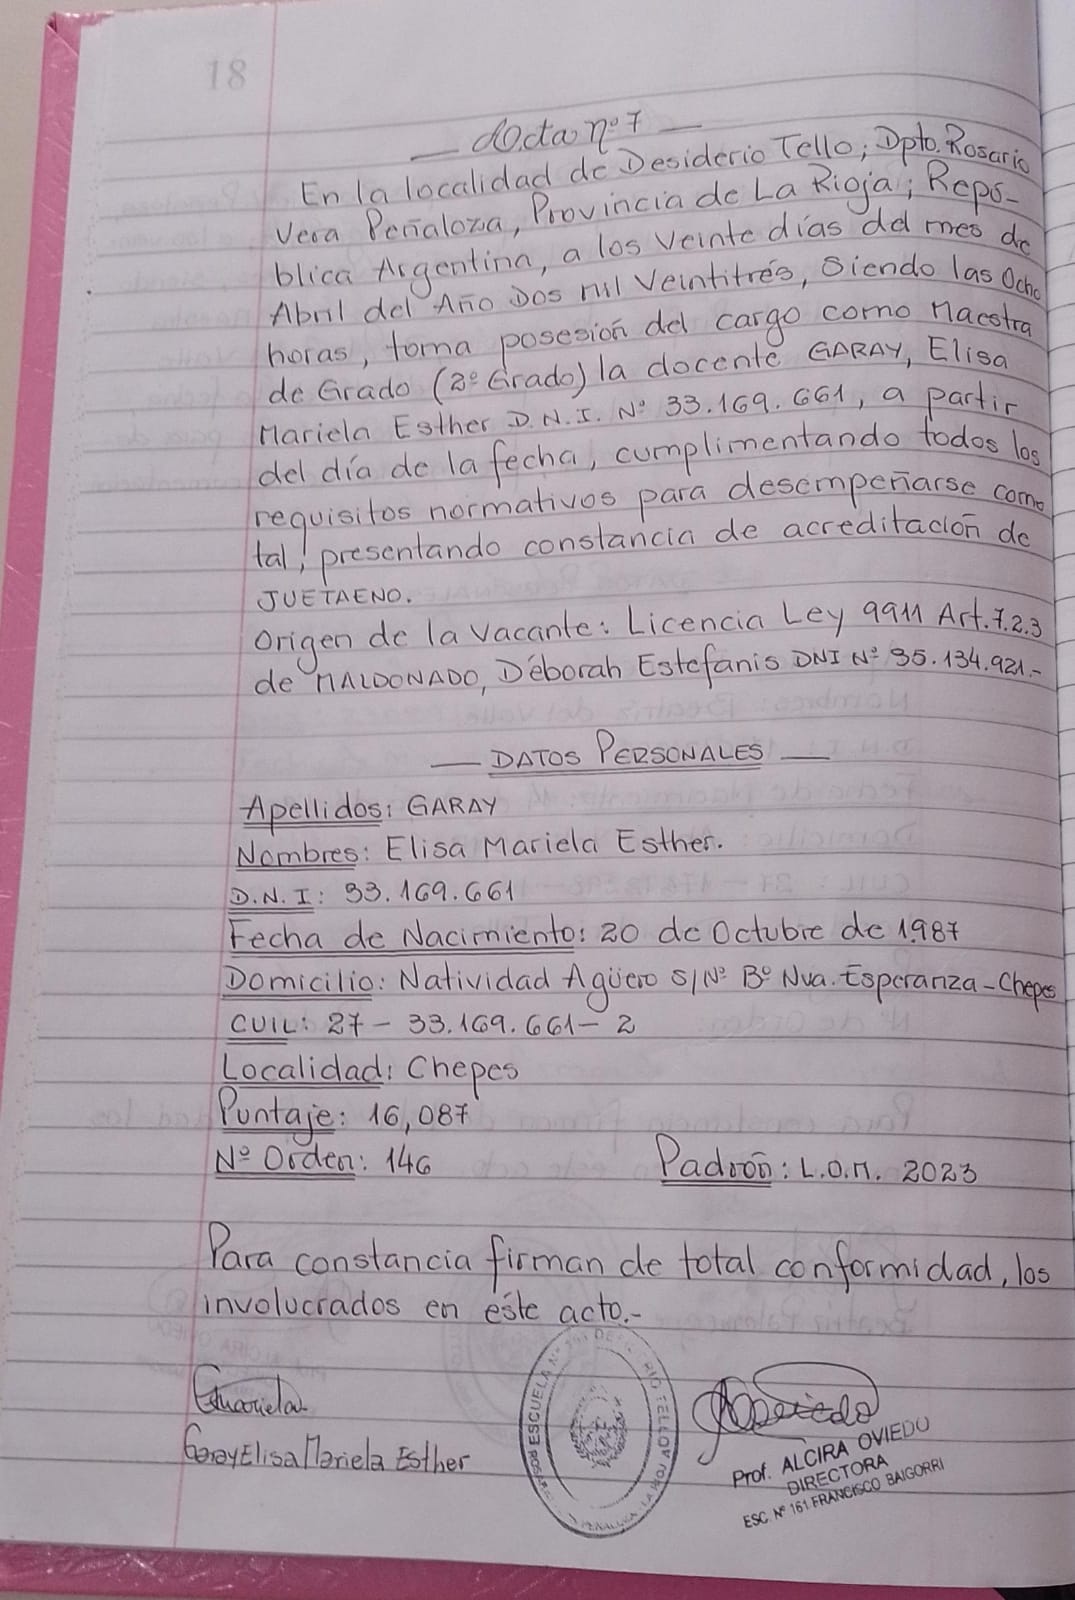 18
— Acta nº 7 —
En la localidad de Desiderio Tello; Dpto. Rosario
Vera Peñaloza, Provincia de La Rioja; Repú-
blica Argentina, a los veinte días del mes de
Abril del Año Dos mil Veintitrés, siendo las Ocho
horas, toma posesión del cargo como Maestra
de Grado (2º Grado) la docente GARAY, Elisa
Mariela Esther D.N.I. Nº 33.169.661, a partir
del día de la fecha, cumplimentando todos los
requisitos normativos para desempeñarse como
tal, presentando constancia de acreditación de
JUETAENO.
Origen de la vacante: Licencia Ley 9911 Art. 7.2.3
de MALDONADO, Déborah Estefanis DNI Nº 35.134.921.-
— DATOS PERSONALES —
Apellidos: GARAY
Nombres: Elisa Mariela Esther.
D.N.I: 33.169.661
Fecha de Nacimiento: 20 de Octubre de 1987
Domicilio: Natividad Agüero S/Nº Bº Nva. Esperanza - Chepes
CUIL: 27 - 33.169.661 - 2
Localidad: Chepes
Puntaje: 16,087
Nº Orden: 146 Padrón: L.O.M. 2023
Para constancia firman de total conformidad, los
involucrados en este acto.-
Garay Elisa Mariela Esther
ESCUELA Nº
TELLO
Prof. ALCIRA OVIEDO
DIRECTORA
ESC. Nº 161 FRANCISCO BAIGORRI